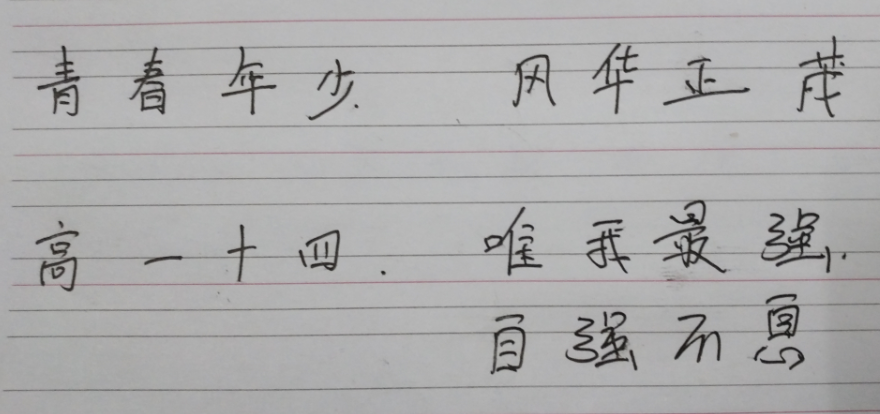 青春年少 风华正茂
高一十四. 唯我最强.
自强不息